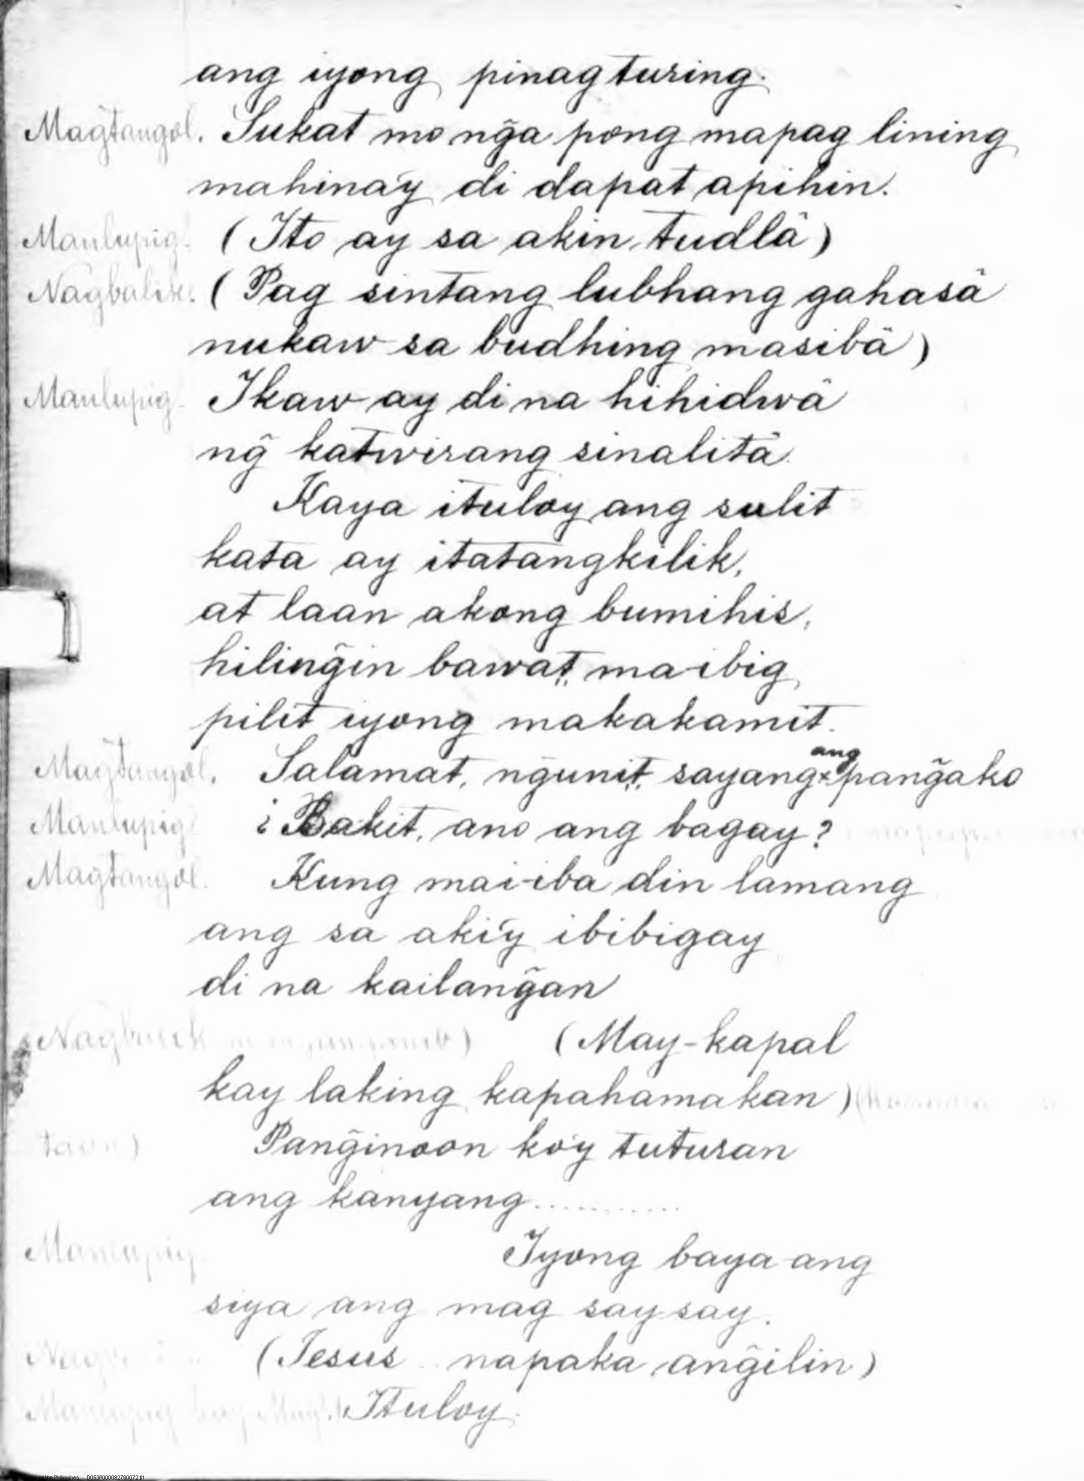 ang iyong pinagturing.
Mag̃tangol. Sukat mo ng̃a pong mapag lining
mahina'y di dapat apihin.
Manlupig. (Ito ay sa akin tudlâ)
Nagbalik. (Pag sintang lubhang gahasâ
nukaw sa budhing masibâ)
Manlupig. Ikaw ay di na hihidwâ
ng̃ katwirang sinalitâ.
Kaya ituloy ang sulit
kata ay itatangkilik,
at laan akong bumihis,
hiling̃in bawat, ma-ibig
pilit iyong makakamit.
Mag̃tangol. Salamat, ng̃unit, sayang ang pang̃ako
Manlupig ¿Bakit, ano ang bagay?
Magtangol. Kung mai-iba din lamang
ang sa aki'y ibibigay
di na kailang̃an
(May-kapal
kay laking kapahamakan)
Pang̃inoon ko'y tuturan
ang kanyang............
Manlupig. Iyong baya-ang
siya ang mag saysay.
(Jesus napaka ang̃ilin)
Ituloy.